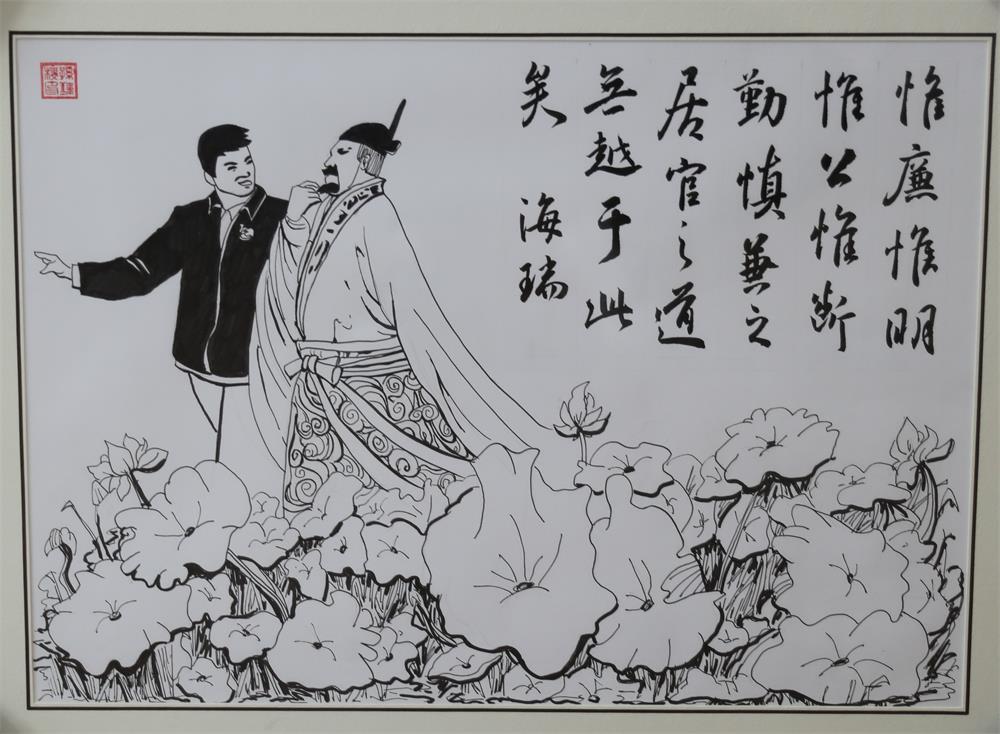 惟廉惟明
惟公惟断
勤慎兼之
居官之道
無越于此
矣 海瑞